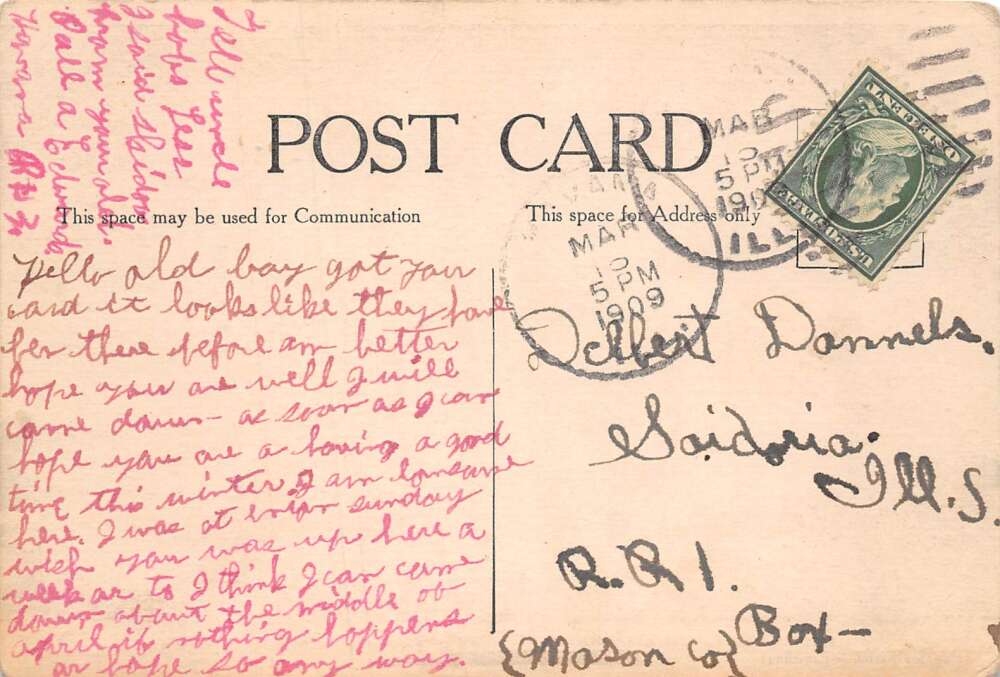 POST CARD
This space may be used for Communication
This space for Address only
Tell uncle
bobs Lees
I said skidoo
from your old.
Pall a Edwards
Havana
Hello old boy got your
card it looks like they have
ben there before am better
hope you are well I will
come down as soon as I can
hope you are a having a good
time this winter. I am lonsome
here. I was at sunday
wish you was up here a
week ar to I think I can come
down about the middle of
april if nothing happens
ar hope so any way.
HAVANA
MAR
10
5 PM
1909
MAR
10
5 PM
190
ILL.
U.S. POSTAGE
ONE CENT
Delbert Dannels.
Saidoria.
Ill.s.
R.R 1.
Box—
{Mason co}